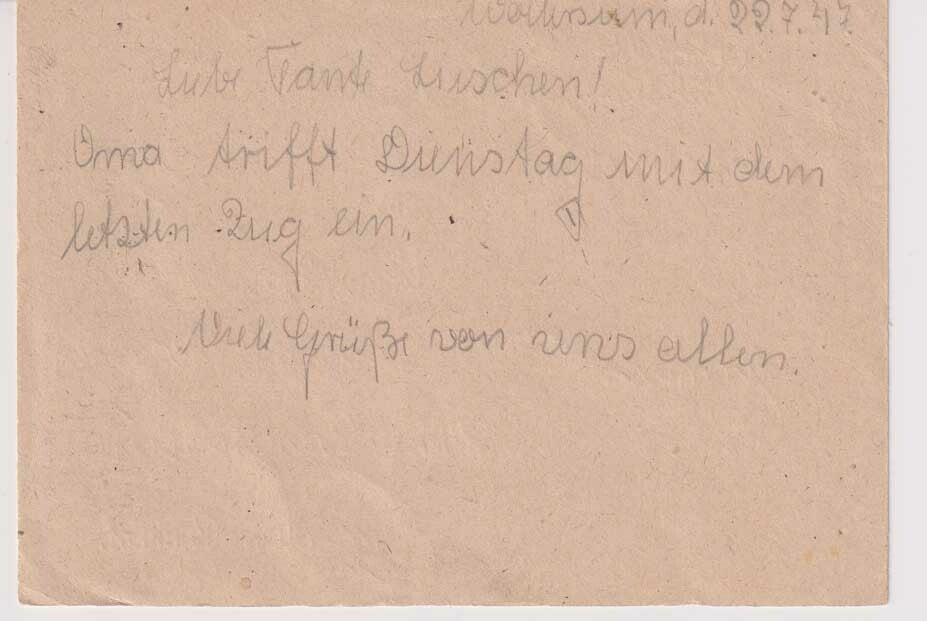 d. 22.7.47.
Liebe Tante Lieschen!
Oma trifft Dienstag mit dem
letzten Zug ein.
Viele Grüße von uns allen.